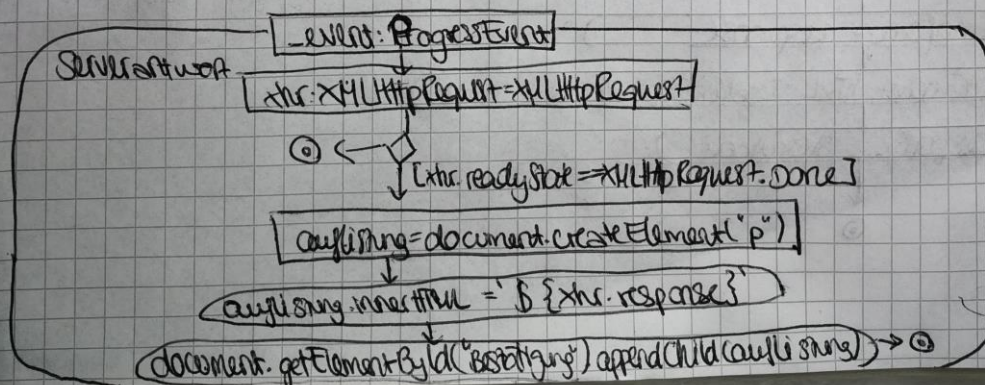 _event: ProgressEvent
Serverantwort
xhr: XMLHttpRequest = XMLHttpRequest
[xhr.readyState == XMLHttpRequest.Done]
auflistung = document.createElement("p")
auflistung.innerHTML = `${xhr.response}`
document.getElementById("Bestätigung").appendChild(auflistung)